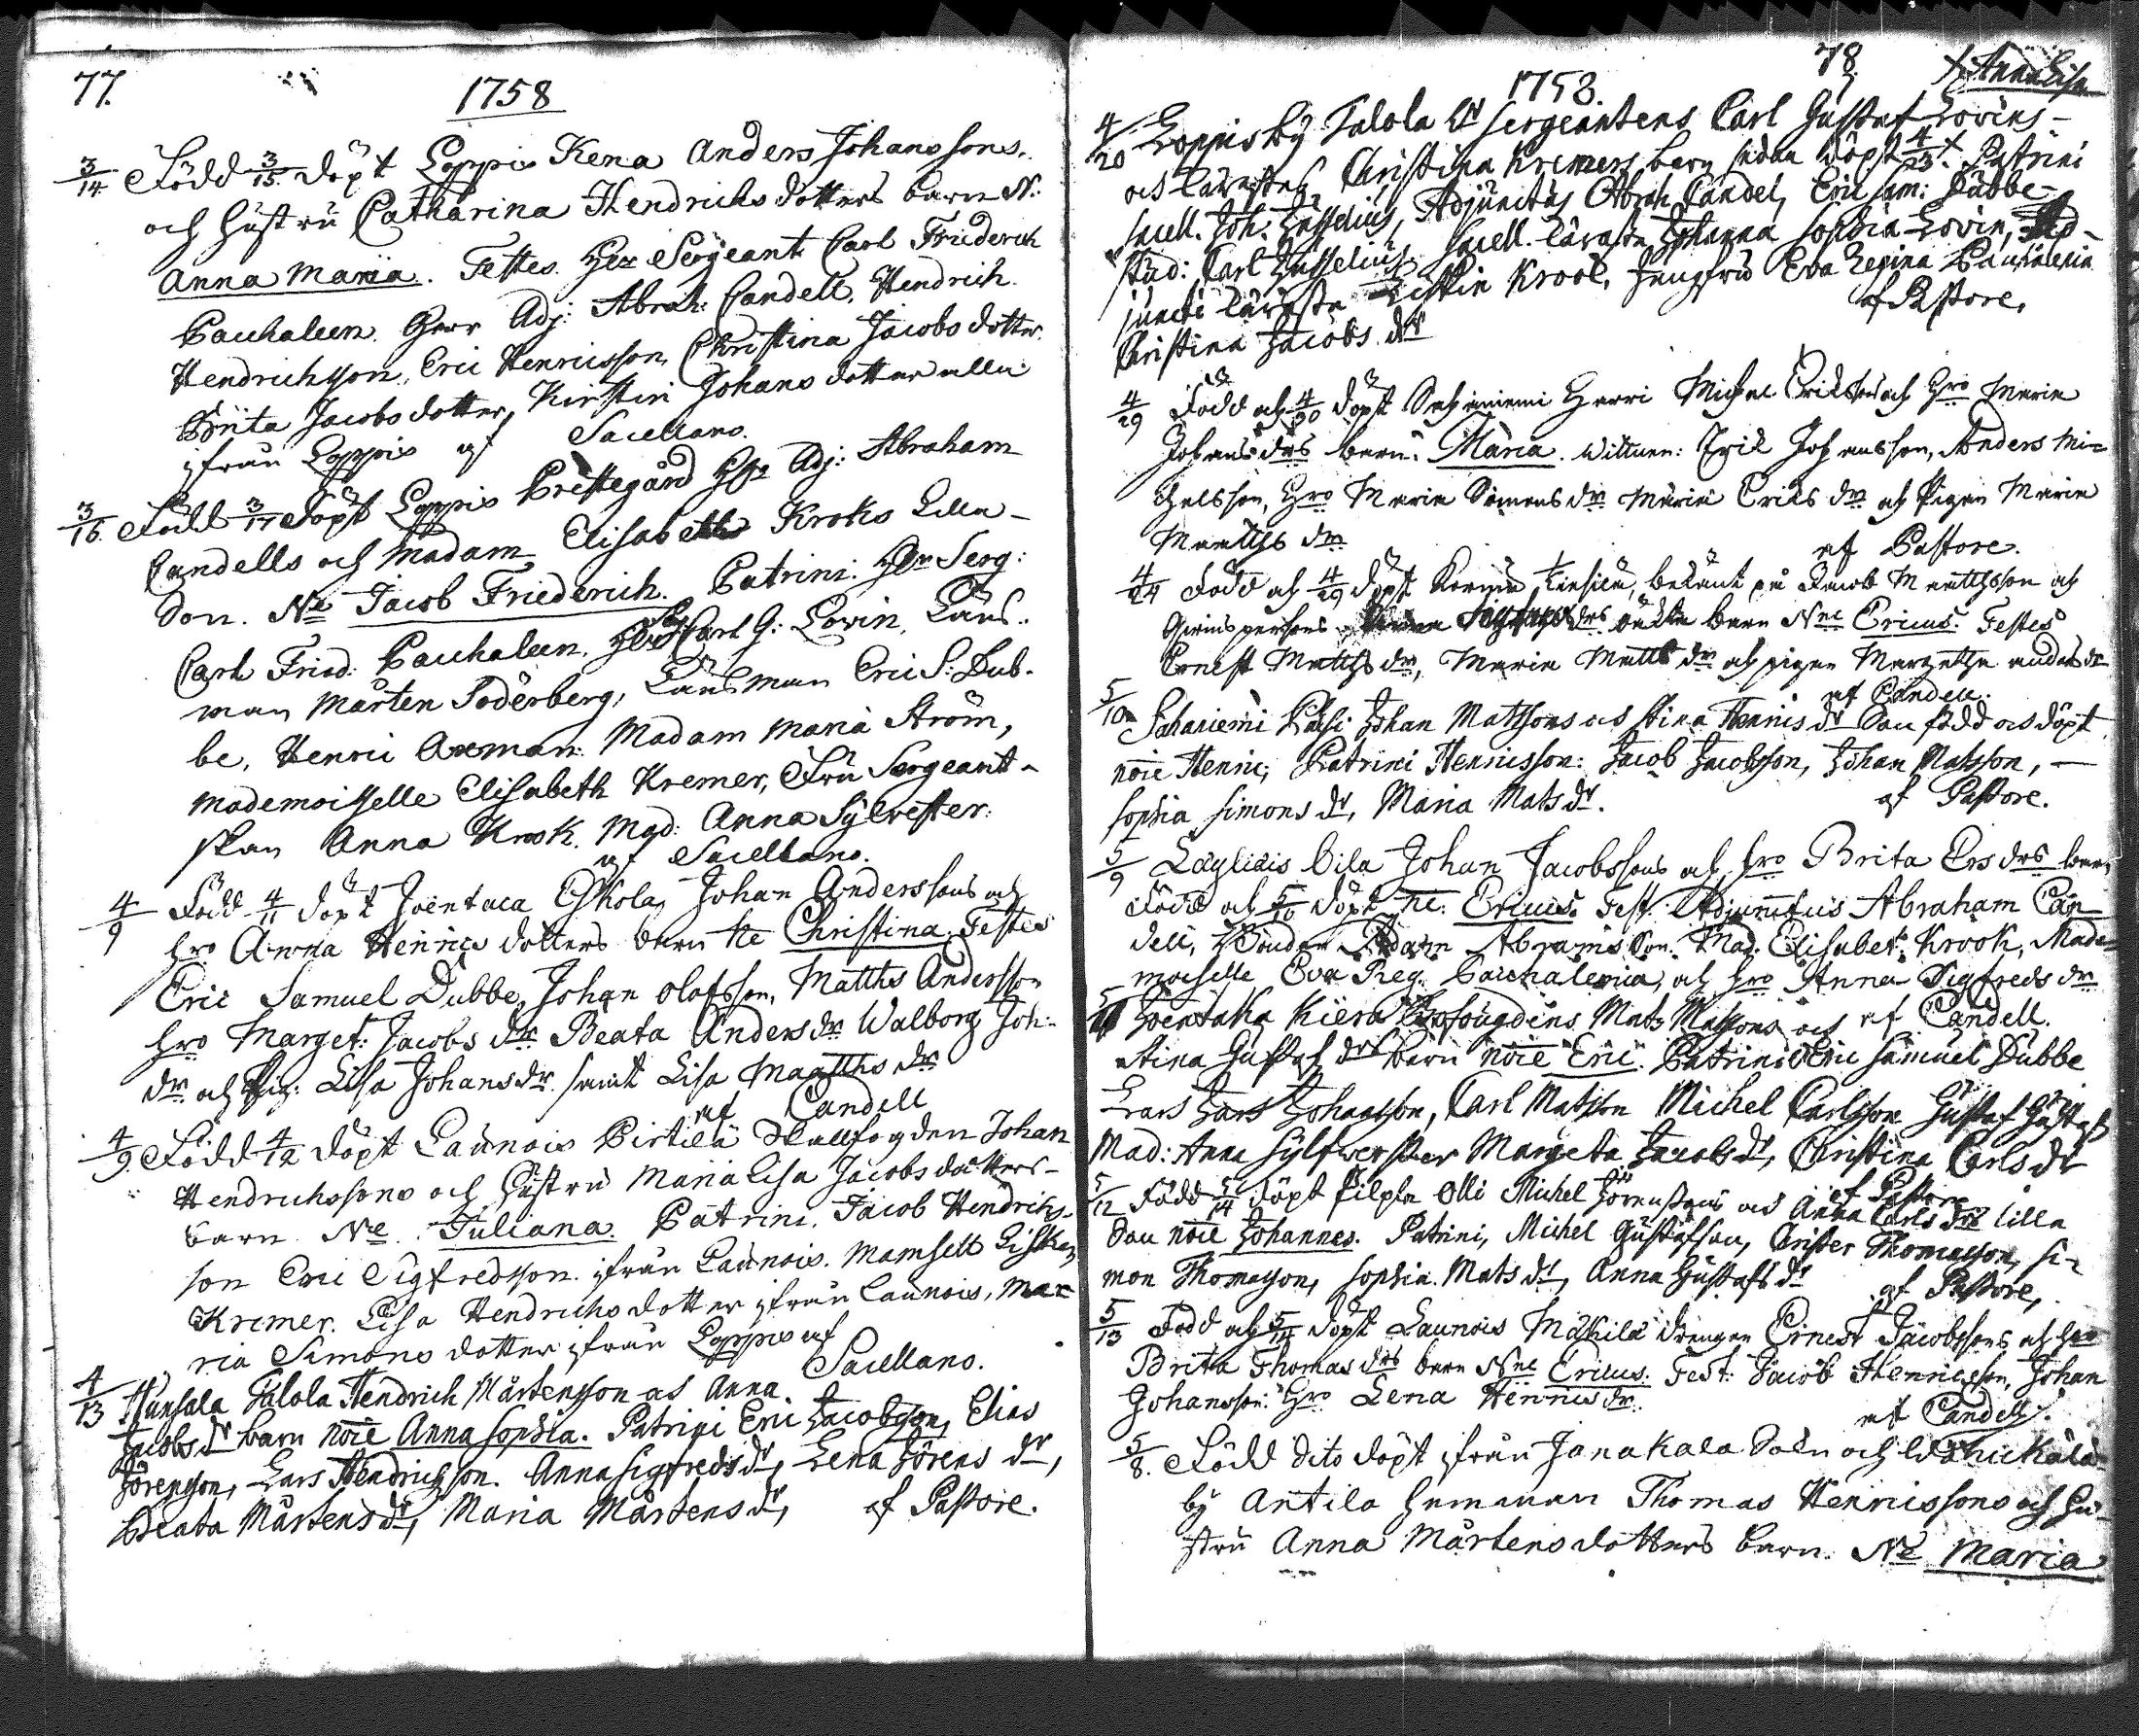 77.
1758
3/14 Född 3/15 döpt Loppis Kena Anders Johanssons
och hustru Catharina Hendrichsdotters barn N:
Anna Maria. Testes Herr Sergeant Carl Friederich
Pauhaleen. Herr Adj: Abrah: Candell, Hendrich
Hendrichsson, Eric Henricsson, Christina Jacobsdotter
Brita Jacobsdotter, Kirstin Johansdotter alla
ifrån Loppis af Sacellano.
3/16 Född 3/17 döpt Loppis Prestegård Hr Adj: Abraham
Candells och Madam Elisabeth Kroks Lilla
Son. Ne Jacob Friederich. Patrini: Hr Serg:
Carl Fried: Pauhaleen, Carl G: Lovin, Läns-
man Mårten Söderberg, Länsman Eric S: Dub-
be, Henric Axman. Madam Maria Ström,
Mademoiselle Elisabeth Kremer, Fru Sergeant-
skan Anna Krook. Mad: Anna Sylvester.
af Sacellano.
4/9 Född 4/11 döpt Joentaca Eskola, Johan Anderssons och
hro Anna Henrics dotters barn Ne Christina. Testes
Eric Samuel Dubbe, Johan Olofsson, Matths Andersson
hro Marget: Jacobs dr Beata Anders dr Walborg Joh:
dr och Pig: Lisa Johans dr samt Lisa Matths dr
af Candell
4/9 Född 4/12 döpt Launois Pirtilä Skallfogden Johan
Hendrichssons och hustru Maria Lisa Jacobsdotters
barn Ne Juliana. Patrini. Jacob Hendrichs-
son Eric Sigfredsson ifrån Launois. Mamsell Lisken
Kremer. Lisa Hendrichsdotter ifrån Launois, Ma-
ria Simonsdotter ifrån Loppis af
Sacellano.
4/13 Hunsala Talola Hendrich Mårtensson och Anna
Jacobs dr barn noie Anna Sophia. Patrini Eric Jacobsson, Elias
Jörensson, Lars Hendrichson. Anna Sigfreds dr, Lena Jörens dr,
Beata Mårtens dr, Maria Mårtens dr, af Pastore.
78
X Anna Lisa
1758.
4/20 Loppis by Talola Sergeantens Carl Gustaf Lovins
och Christina Kremers barn döpt 4/23 X. Patrini
Sacell. Joh: Hasselius, Adjunctus Abrah. Candel, Eric Sam: Dubbe
stud: Carl Hasselius, Sacell. Johanna Sophia Lovin, Ad-
juncti Krook, Jungfru Eva Regina Pauhalenia
Christina Jacobs dr af Pastore.
4/29 Född och 4/30 döpt Herri Michel och hro Maria
Johans drs barn Maria. Wittnen: Erik Johansson, Anders Mi-
chelsson, hro Maria Simons dr Maria Eriks dr och Pigan Maria
Matths dr
af Pastore.
4/24 Född och 4/29 döpt på Jacob Matthsson och
barn Nne Ericus. Testes
Ernest Matths dr, Maria Matts dr och pigan Margetha Anders dr
af Candell.
5/10 Sahaniemi Johan Matssons och Stina Henrics dr Son född och döpt
noie Henric; Patrini Henricsson: Jacob Jacobsson, Johan Matsson,
Sophia Simons dr, Maria Mats dr.
af Pastore.
5/9 Läyliäis Oila Johan Jacobssons och hro Brita Ers drs barn
Född och 5/10 döpt ne: Ericus. Test: Adjunctus Abraham Can-
dell, Bonden Adam Abramsson. Mad: Elisabet: Krook, Made-
moiselle Eva Reg: Pauhalenia, och hro Anna Sigfreds dr
af Candell.
Joentaka Kiero Mats Matssons och
Stina Gustafs drs barn noie Eric. Patrini Eric Samuel Dubbe
Lars Johansson, Carl Matsson Michel Carlsson Gustaf Gustafs
Mad: Anna Sylfwerster Margeta Jacobs dr, Christina Carls dr
af Pastore
5/12 Född 5/14 döpt Pilpla Olli Michel Jörenssons och Anna Carls drs lilla
Son noie Johannes. Patrini, Michel Gustafson, Christer Thomasson, Si-
mon Thomasson, Sophia Mats dr, Anna Gustafs dr
af Pastore,
5/13 Född och 5/14 döpt Launois Mäkilä drengen Ernest Jacobssons och hro
Brita Thomas drs barn Nne Ericus. Test: Jacob Henricsson, Johan
Johansson: hro Lena Henrics dr.
af Candell.
5/8. Född dito döpt ifrån Janakala Soken och
by Antila Thomas Henricssons och hu-
stru Anna Mårtensdotters barn. Ne Maria